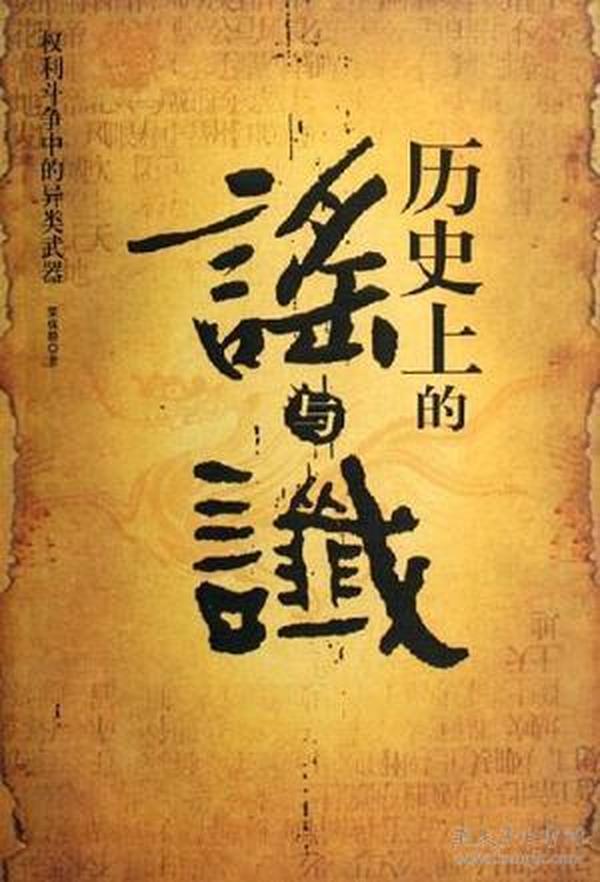 历史上的
謠
与
讖
权利斗争中的异类武器